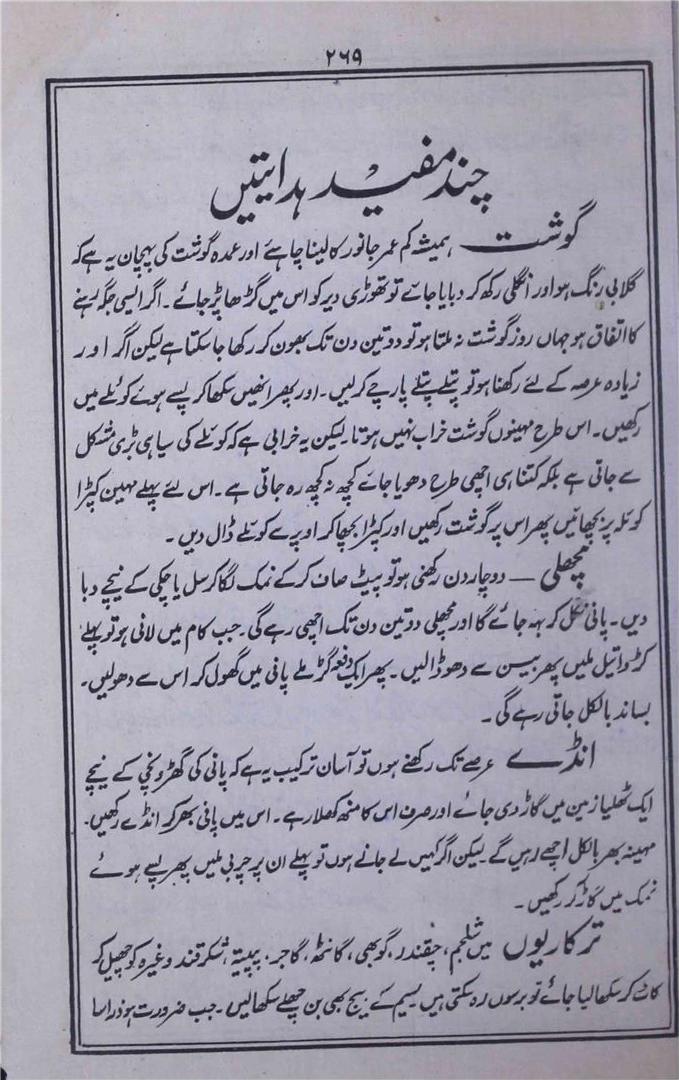 ۲۶۹
چند مفید ہدایتیں
گوشت ہمیشہ کم عمر جانور کا لینا چاہئے اور عمدہ گوشت کی پہچان یہ ہے کہ
گلابی رنگ ہو اور انگلی رکھ کر دبایا جائے تو تھوڑی دیر کو اس میں گڑھا پڑ جائے۔ اگر ایسی جگہ رہنے
کا اتفاق ہو جہاں روز گوشت نہ ملتا ہو تو دو تین دن تک بھون کر رکھا جا سکتا ہے لیکن اگر اور
زیادہ عرصہ کے لئے رکھنا ہو تو پتلے پتلے پارچے کر لیں۔ اور پھر انھیں سکھا کر پسے ہوئے کوئلے میں
رکھیں۔ اس طرح مہینوں گوشت خراب نہیں ہوتا۔ لیکن یہ خرابی ہے کہ کوئلے کی سیاہی بڑی مشکل
سے جاتی ہے بلکہ کتنا ہی اچھی طرح دھویا جائے کچھ نہ کچھ رہ جاتی ہے۔ اس لئے پہلے مہین کپڑا
کوئلہ پر بچھائیں پھر اس پر گوشت رکھیں اور کپڑا بچھا کر اوپر سے کوئلے ڈال دیں۔
مچھلی — دو چار دن رکھنی ہو تو پیٹ صاف کر کے نمک لگا کر سل یا چکی کے نیچے دبا
دیں۔ پانی نکل کر بہہ جائے گا اور مچھلی دو تین دن تک اچھی رہے گی۔ جب کام میں لانی ہو تو پہلے
کڑوا تیل ملیں پھر بیسن سے دھو ڈالیں۔ پھر ایک دفعہ گڑ ملے پانی میں گھول کر اس سے دھولیں۔
بساند بالکل جاتی رہے گی۔
انڈے عرصے تک رکھنے ہوں تو آسان ترکیب یہ ہے کہ پانی کی گھڑونچی کے نیچے
ایک ٹھلیا زمین میں گاڑ دی جائے اور صرف اس کا منھ کھلا رہے۔ اس میں پانی بھر کر انڈے رکھیں۔
مہینہ بھر بالکل اچھے رہیں گے لیکن اگر کہیں لے جانے ہوں تو پہلے ان پر چربی ملیں پھر پسے ہوئے
نمک میں گاڑ کر رکھیں۔
ترکاریوں میں شلجم، چقندر، گوبھی، گانٹھ، گاجر، پپیتہ، شکرقند وغیرہ کو چھیل کر
کاٹ کر سکھا لیا جائے تو برسوں رہ سکتی ہیں سیم کے بیج بھی بن چھلے سکھا لیں۔ جب ضرورت ہو ذرا سا